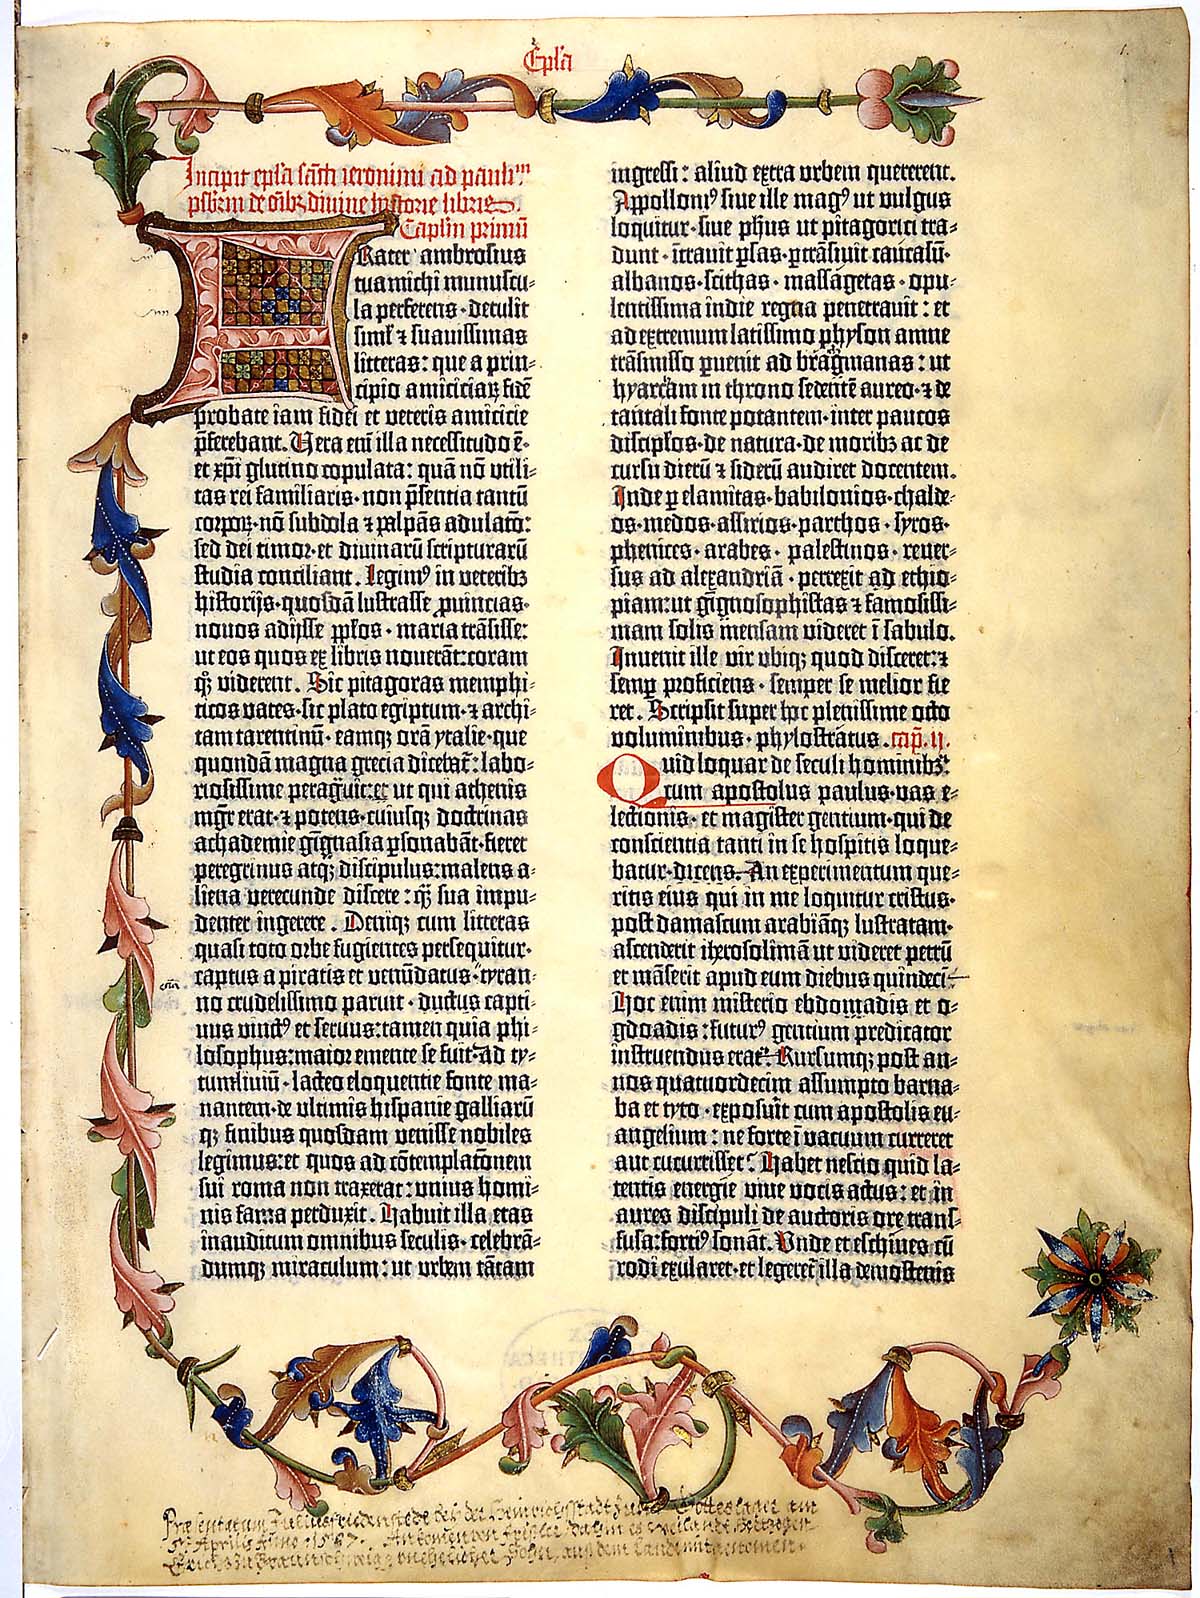 Epl̄a
Incipit epl̄a sc̄ti ieronimi ad paulinū
p̄sb̄rm de om̄ibꝫ divine historie libris.
Capl̄m primū
Frater ambrosius
tua michi munuscu-
la perferens· detulit
siml̄ ⁊ suavissimas
litteras: que a prin-
cipio amiciciaꝝ fidē
probate iam fidei et veteris amicicie
p̄ferebant. Vera em̄ illa necessitudo ē·
et xp̄i glutino copulata: quā nō utili-
tas rei familiaris· non p̄sentia tantū
corpoꝝ· nō subdola ⁊ palpās adulatō:
sed dei timor· et divinarū scripturarū
studia conciliant. Legimꝰ in veteribꝫ
historijs· quosdā lustrasse ꝓvincias·
novos adijsse ppl̄os· maria trāsisse:
ut eos quos ex libris noverāt: coram
qꝫ viderent. Sic pitagoras memphi-
ticos vates· sic plato egiptum· ⁊ archi-
tam tarentinū· eamqꝫ orā ytalie· que
quondā magna grecia dicebat̄: labo-
riosissime peragͣvit: et ut qui athenis
mgr̄ erat· ⁊ potens· cuiusqꝫ doctrinas
achademie gignasia ꝑsonabāt· fieret
peregrinus atqꝫ discipulus: malens a-
liena verecunde discere: qͣꝫ sua impu-
denter ingerere. Deniqꝫ cum litteras
quasi toto orbe fugientes persequitur·
captus a piratis et venūdatus· tyran-
no crudelissimo paruit· ductus capti-
vus vinctꝰ et servus: tamen quia phi-
losophus: maior emente se fuit· Ad ty-
tumlivium· lacteo eloquentie fonte ma-
nantem· de ultimis hispanie galliarū
qꝫ finibus quosdam venisse nobiles
legimus: et quos ad cōtemplatōnem
sui roma non traxerat: unius homi-
nis fama perduxit. Habuit illa etas
inauditum omnibus seculis· celebrā-
dumqꝫ miraculum: ut urbem tātam
ingressi: aliud extra urbem quererent.
Appollonꝰ sive ille magꝰ ut vulgus
loquitur· sive ph̄us ut pitagorici tra-
dunt· ītravit ꝑsas· ꝑtrāsivit caucasū·
albanos· scithas· massagetas· opu-
lentissima indie regna penetravit: et
ad extremum latissimo physon amne
trāsmisso ꝑvenit ad bragmanas: ut
hyarcam in throno sedentē aureo· ⁊ de
tantali fonte potantem· inter paucos
discipl̄os· de natura· de moribꝫ ac de
cursu dierū ⁊ siderū audiret docentem.
Inde ꝑ elamitas· babilonios· chalde-
os· medos· assirios· parthos· syros·
phenices· arabes· palestinos· rever-
sus ad alexandriā· perrexit ad ethio-
piam: ut gignosophistas ⁊ famosissi-
mam solis mensam videret ī sabulo.
Invenit ille vir ubiqꝫ quod disceret: ⁊
semꝑ proficiens· semper se melior fie
ret. Scripsit super hoc plenissime octo
voluminibus· phylostratus. cap̄. ij.
Quid loquar de seculi hominibꝫ:
cum apostolus paulus· vas e-
lectionis· et magister gentium· qui de
conscientia tanti in se hospitis loque-
batur· dicens. An experimentum que-
ritis eius qui in me loquitur cristus·
post damascum arabiāqꝫ lustratam·
ascenderit iherosolimā ut videret petrū
et māserit apud eum diebus quindecī·
Hoc enim misterio ebdomadis et o-
gdoadis: futurꝰ gentium predicator
instruendus erat. Rursumqꝫ post an-
nos quatuordecim assumpto barna-
ba et tyto· exposuit cum apostolis eu-
angelium: ne forte ī vacuum curreret
aut cucurrisset. Habet nescio quid la-
tentis energie vive vocis actus: et in
aures discipuli de auctoris ore trans-
fusa: fortiꝰ sonat. Unde et eschines cū
rodi exularet· et legeret̄ illa demostenis
Præsentatum Juliusfriedenstede bei der Heinrichsstadt zum Gottslager am
Aprilis Anno 1587.